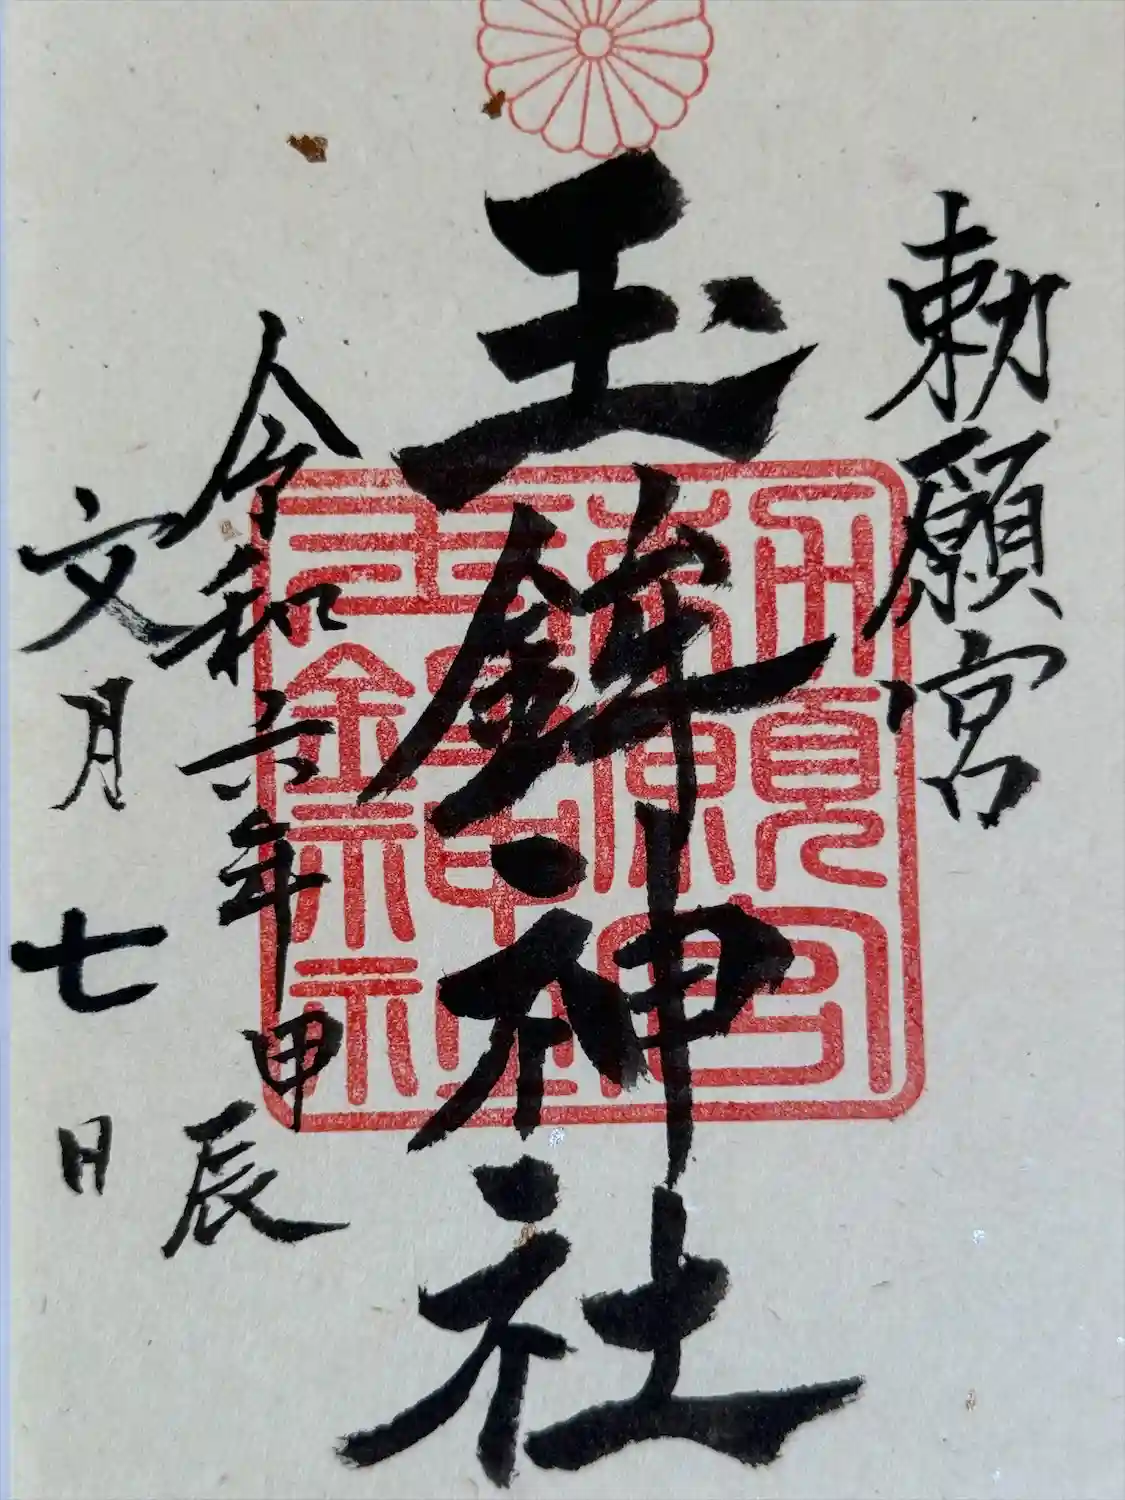 勅願宮
玉鉾神社
勅願宮
玉鉾神社
令和六年甲辰
文月七日